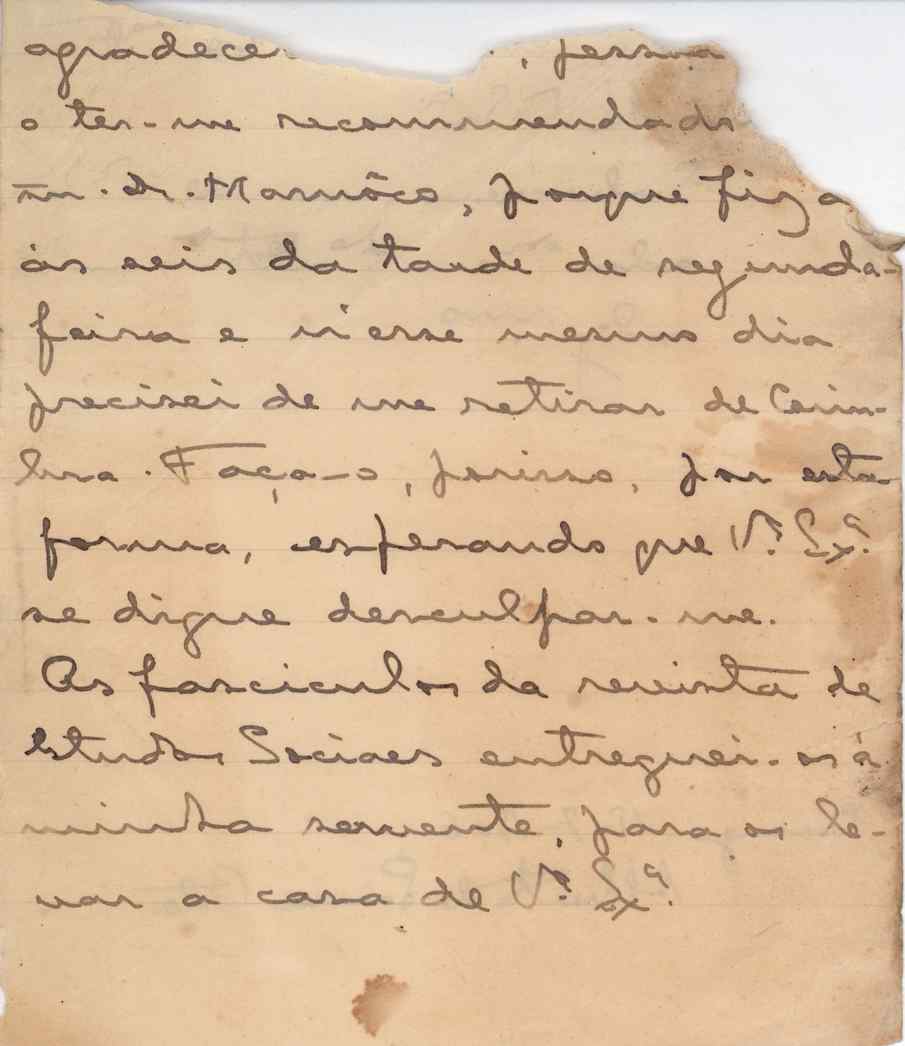 agradecer , pessoa
o ter-me recommendado
Snr. Dr. Marnôco, porque fiz a
ás seis da tarde de segunda-
feira e n'esse mesmo dia
precisei de me retirar de Coim-
bra. Faço-o, porisso, por esta
forma, esperando que V.ª Ex.ª
se digne desculpar-me.
Os fasciculos da revista de
Estudos Sociaes entreguei-os á
minha servente, para os le-
var a casa de V.ª Ex.ª